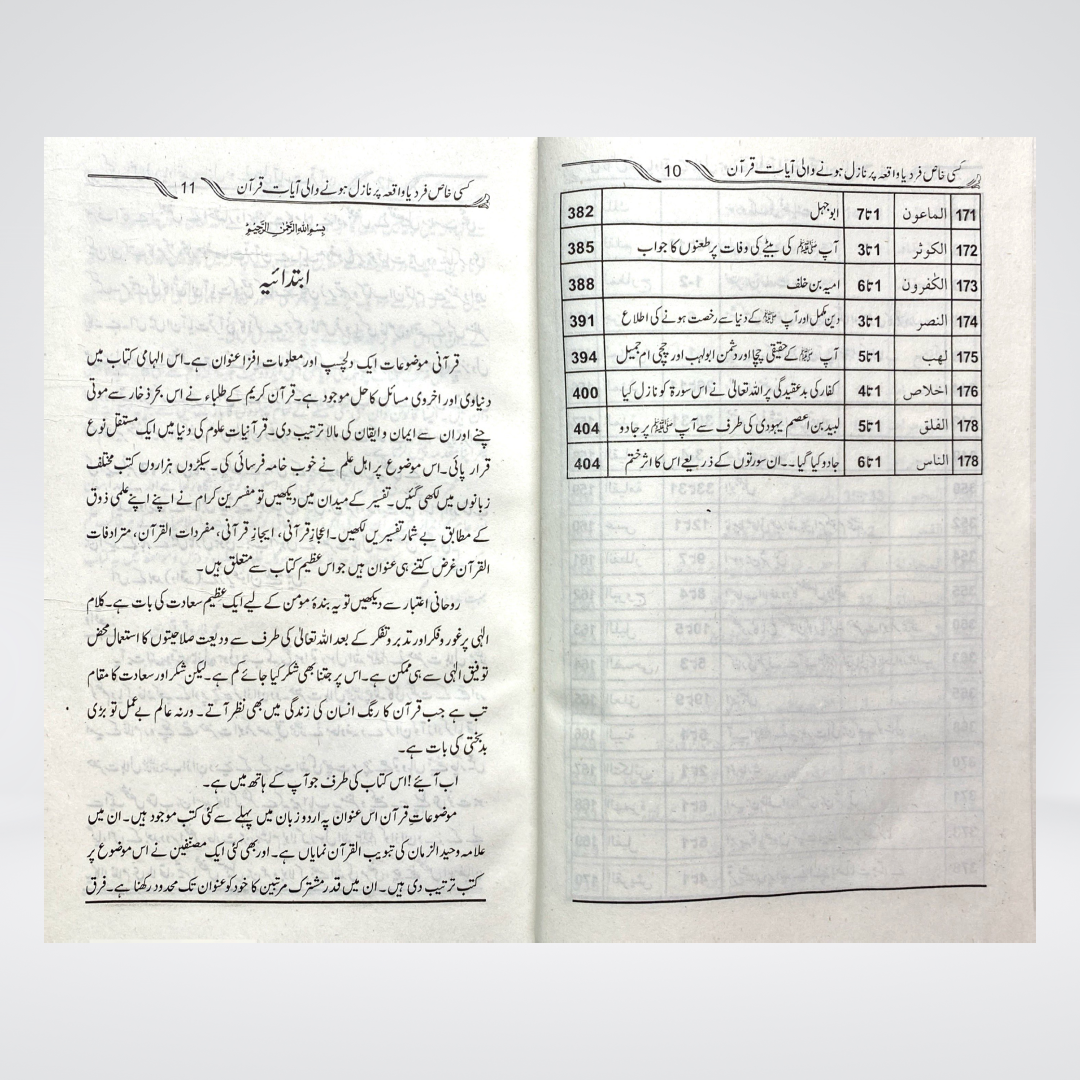 کسی خاص فرد یا واقعہ پر نازل ہونے والی آیات قرآن 10
171 الماعون 1تا7 ابوجہل 382
172 الکوثر 1تا3 آپ ﷺ کی بیٹے کی وفات پر طعنوں کا جواب 385
173 الکٰفرون 1تا6 امیہ بن خلف 388
174 النصر 1تا3 دین مکمل اور آپ ﷺ کے دنیا سے رخصت ہونے کی اطلاع 391
175 لھب 1تا5 آپ ﷺ کے حقیقی چچا اور دشمن ابولہب اور چچی ام جمیل 394
176 اخلاص 1تا4 کفار کی بدعقیدگی پر اللہ تعالیٰ نے اس سورۃ کو نازل کیا 400
178 الفلق 1تا5 لبید بن اعصم یہودی کی طرف سے آپ ﷺ پر جادو 404
178 الناس 1تا6 جادو کیا گیا۔۔ان سورتوں کے ذریعے اس کا اثر ختم 404
کسی خاص فرد یا واقعہ پر نازل ہونے والی آیات قرآن 11
بسم اللہ الرحمن الرحیم
ابتدائیہ
قرآنی موضوعات ایک دلچسپ اور معلومات افزا عنوان ہے۔اس الہامی کتاب میں
دنیاوی اور اخروی مسائل کا حل موجود ہے۔قرآن کریم کے طلباء نے اس بحرِ ذخار سے موتی
چنے اور ان سے ایمان و ایقان کی مالا ترتیب دی۔قرآنیات علوم کی دنیا میں ایک مستقل نوع
قرار پائی۔اس موضوع پر اہل علم نے خوب خامہ فرسائی کی۔سیکڑوں ہزاروں کتب مختلف
زبانوں میں لکھی گئیں۔تفسیر کے میدان میں دیکھیں تو مفسرین کرام نے اپنے اپنے علمی ذوق
کے مطابق بے شمار تفسیریں لکھیں۔اعجازِ قرآنی، ایجازِ قرآنی، مفردات القرآن، مترادفات
القرآن غرض کتنے ہی عنوان ہیں جو اس عظیم کتاب سے متعلق ہیں۔
روحانی اعتبار سے دیکھیں تو یہ بندۂ مؤمن کے لیے ایک عظیم سعادت کی بات ہے۔کلام
الٰہی پر غور و فکر اور تدبر و تفکر کے بعد اللہ تعالیٰ کی طرف سے ودیعت صلاحیتوں کا استعمال محض
توفیق الٰہی سے ہی ممکن ہے۔اس پر جتنا بھی شکر کیا جائے کم ہے۔لیکن شکر اور سعادت کا مقام
تب ہے جب قرآن کا رنگ انسان کی زندگی میں بھی نظر آئے۔ ورنہ عالم بے عمل تو بڑی
بدبختی کی بات ہے۔
اب آئیے !اس کتاب کی طرف جو آپ کے ہاتھ میں ہے۔
موضوعاتِ قرآن اس عنوان پہ اردو زبان میں پہلے سے کئی کتب موجود ہیں۔ان میں
علامہ وحید الزمان کی تبویب القرآن نمایاں ہے۔اور بھی کئی ایک مصنّفین نے اس موضوع پر
کتب ترتیب دی ہیں۔ان میں قدر مشترک مرتبین کا خود کو عنوان تک محدود رکھنا ہے۔فرق